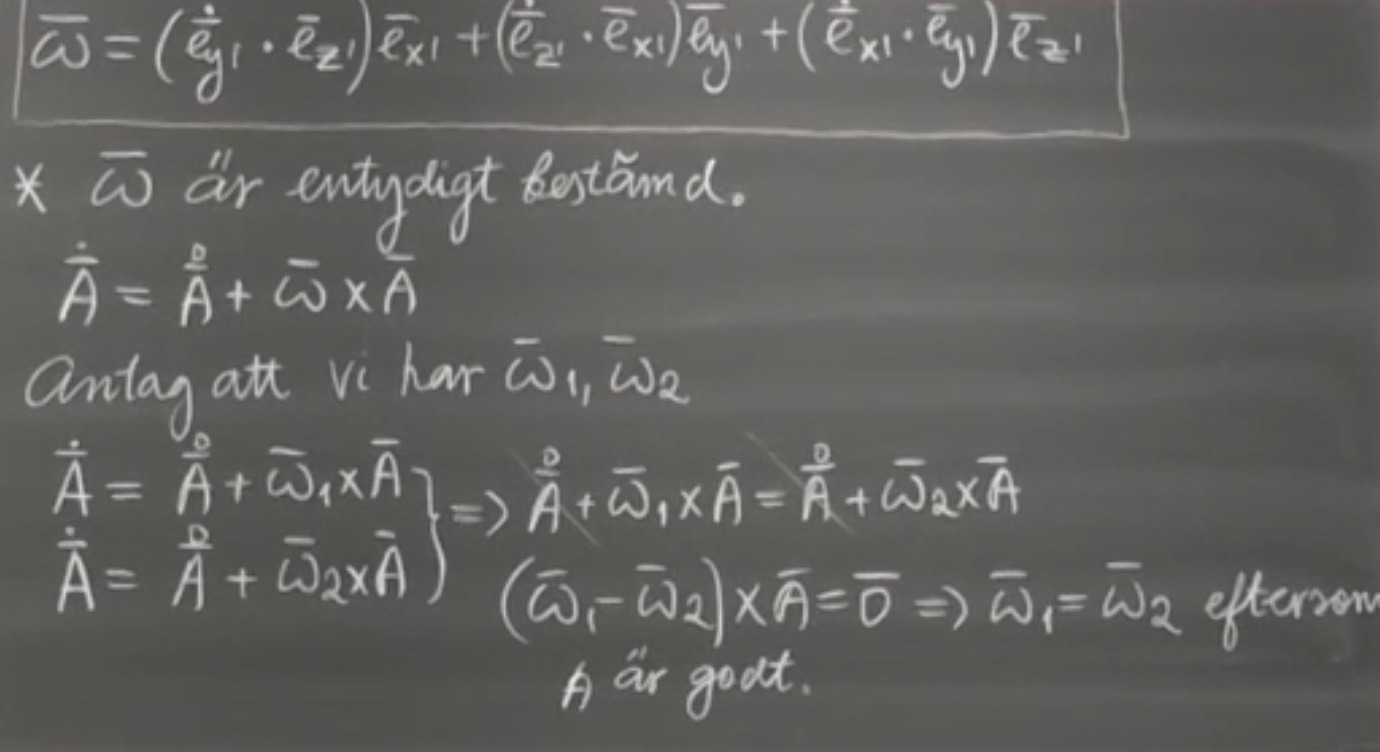 ω̅ = (ė̅y' · e̅z') e̅x' + (ė̅z' · e̅x') e̅y' + (ė̅x' · e̅y') e̅z'
* ω̅ är entydigt bestämd.
Ȧ̅ = Å̅ + ω̅ × A̅
Antag att vi har ω̅₁, ω̅₂
Ȧ̅ = Å̅ + ω̅₁×A̅ } => Å̅ + ω̅₁×A̅ = Å̅ + ω̅₂×A̅
Ȧ̅ = Å̅ + ω̅₂×A̅
(ω̅₁ - ω̅₂)×A̅ = 0̅ => ω̅₁ = ω̅₂ eftersom
A är godt.